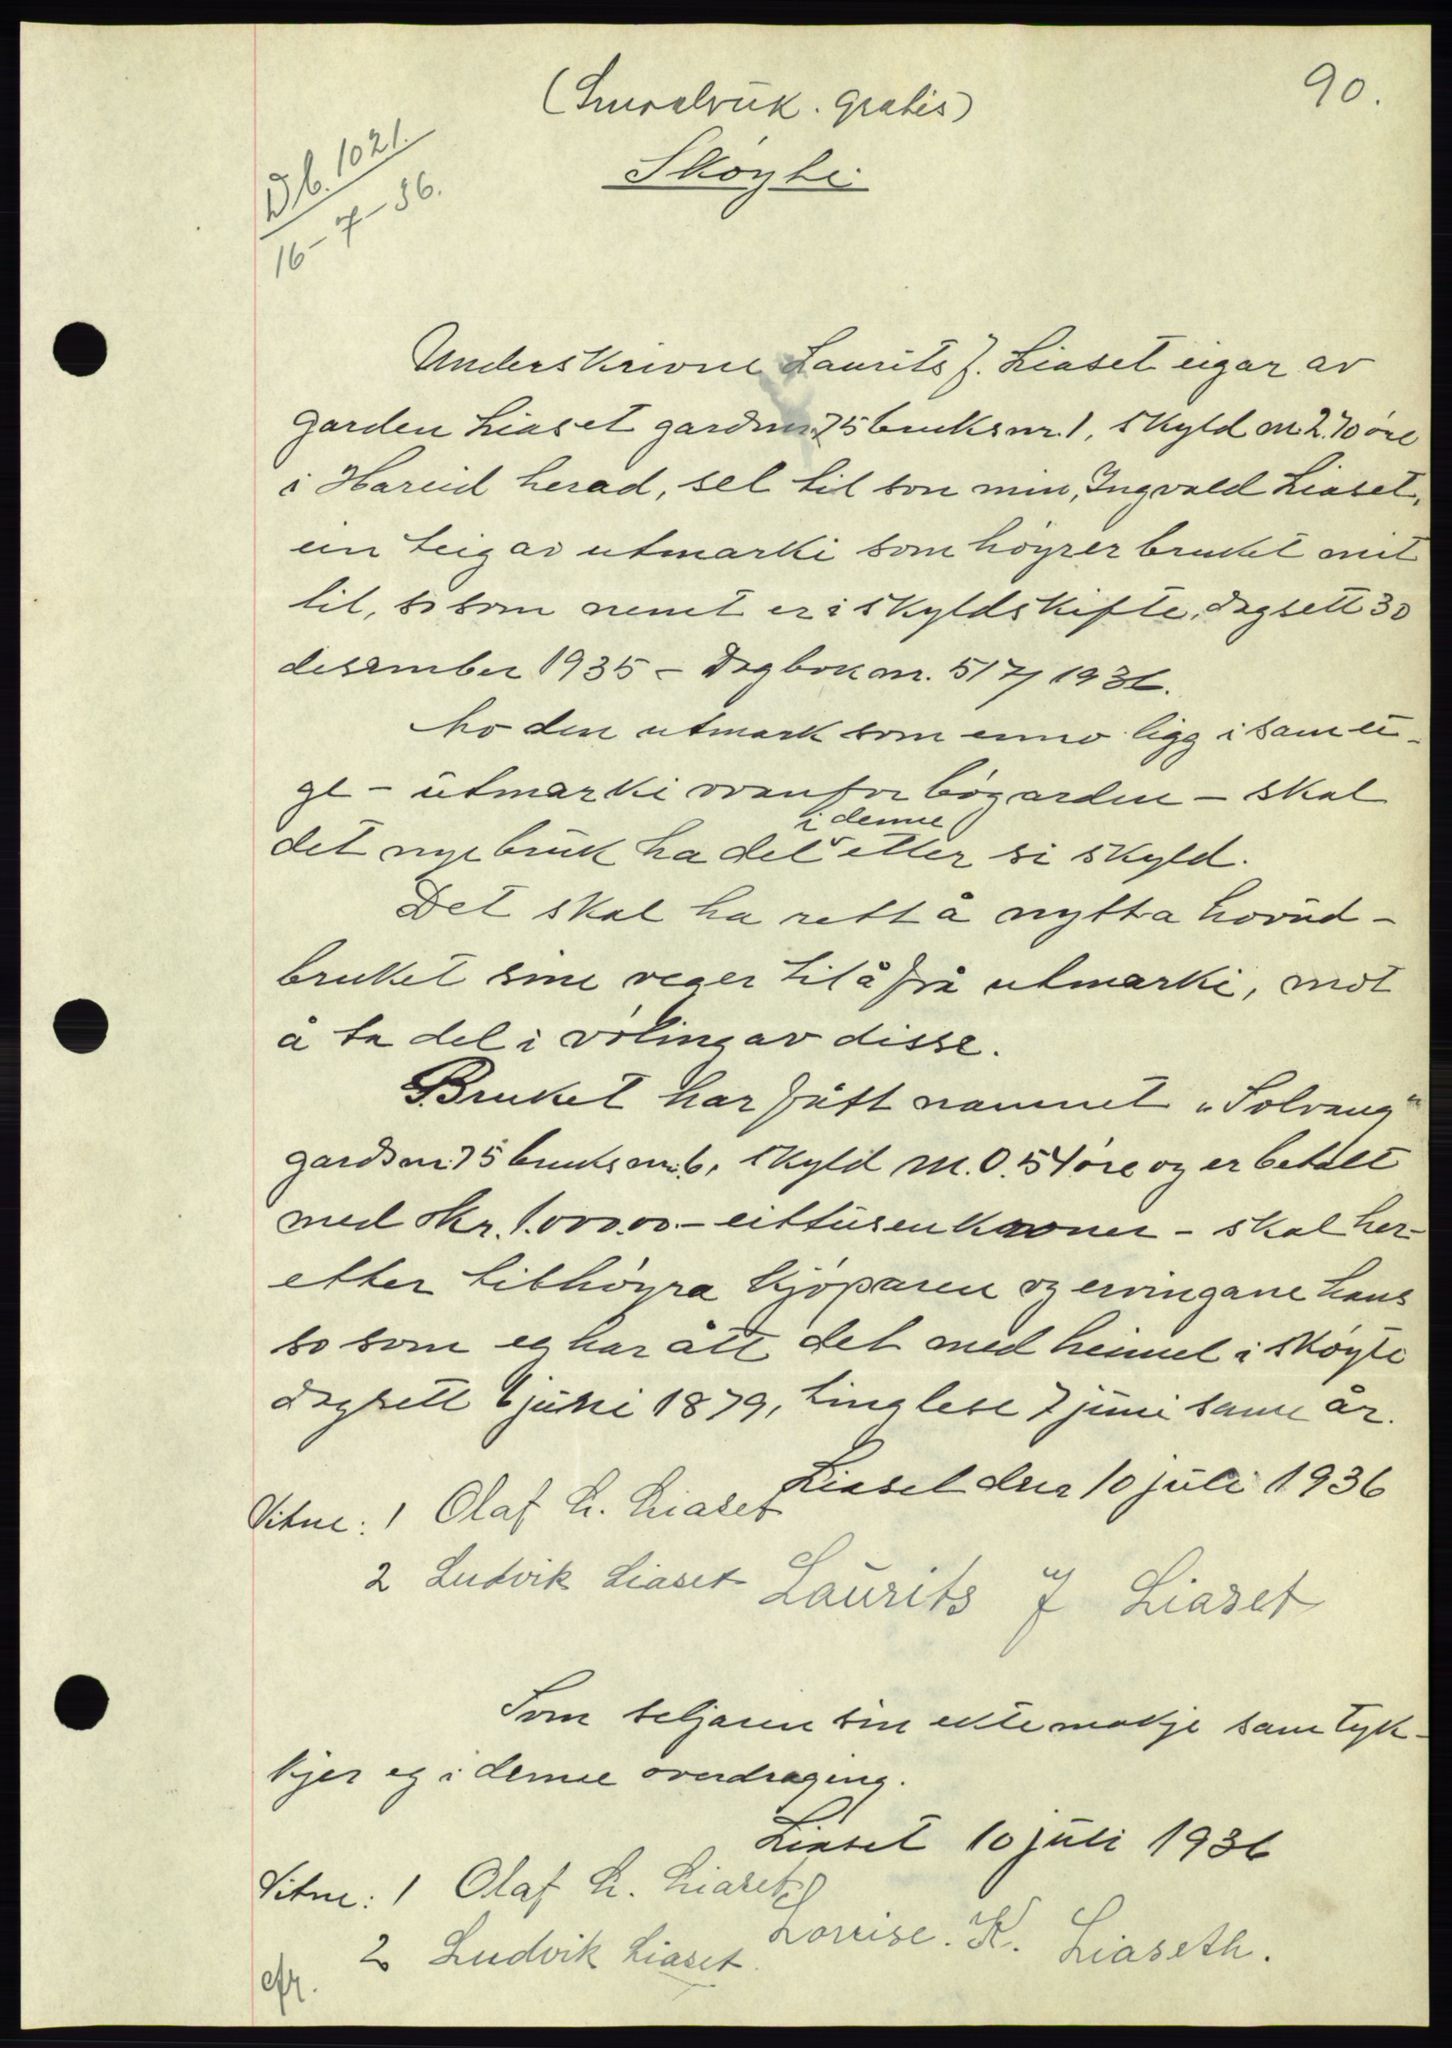 90.
(Smaabruk. gratis)
Skøyte
Db. 1021.
16-7-36.
Underskrivne Laurits J. Liaset eigar av
garden Liaset gardsnr. 75 bruksnr. 1, skyld m. 2.70 øre
i Hareid herad, sel til son min, Ingvald Liaset,
ein teig av utmarki som høyrer bruket mit
til, so som nemt er i skyldskifte, dagsett 30
desember 1935 - Dagbok nr. 517/1936.
Av den utmark som enno ligg i samei-
ge - utmarki ovanfor bøgarden - skal
i denne
det nye bruk ha del etter si skyld.
Det skal ha rett å nytta hovud-
bruket sine veger til å frå utmarki, mot
å ta del i vøling av disse.
Bruket har fått namnet "Solvang"
gardsnr. 75 bruksnr. 6, skyld m. 0.54 øre og er betalt
med kr. 1.000.00 - eittusen kroner - skal her-
etter tilhøyra kjøparen og ervingane hans
so som eg har ått det med heimel i skøyte
dagsett 6 juni 1879, tinglese 7 juni same år.
Liaset den 10 juli 1936
Vitne: 1 Olaf L. Liaset
2 Ludvik Liaset Laurits J Liaset
Som seljaren sin ektemakje samtyk-
kjer eg i denne overdraging.
Liaset 10 juli 1936
Vitne: 1 Olaf L. Liaset
Lovise. K. Liaseth.
2 Ludvik Liaset.
cfr.